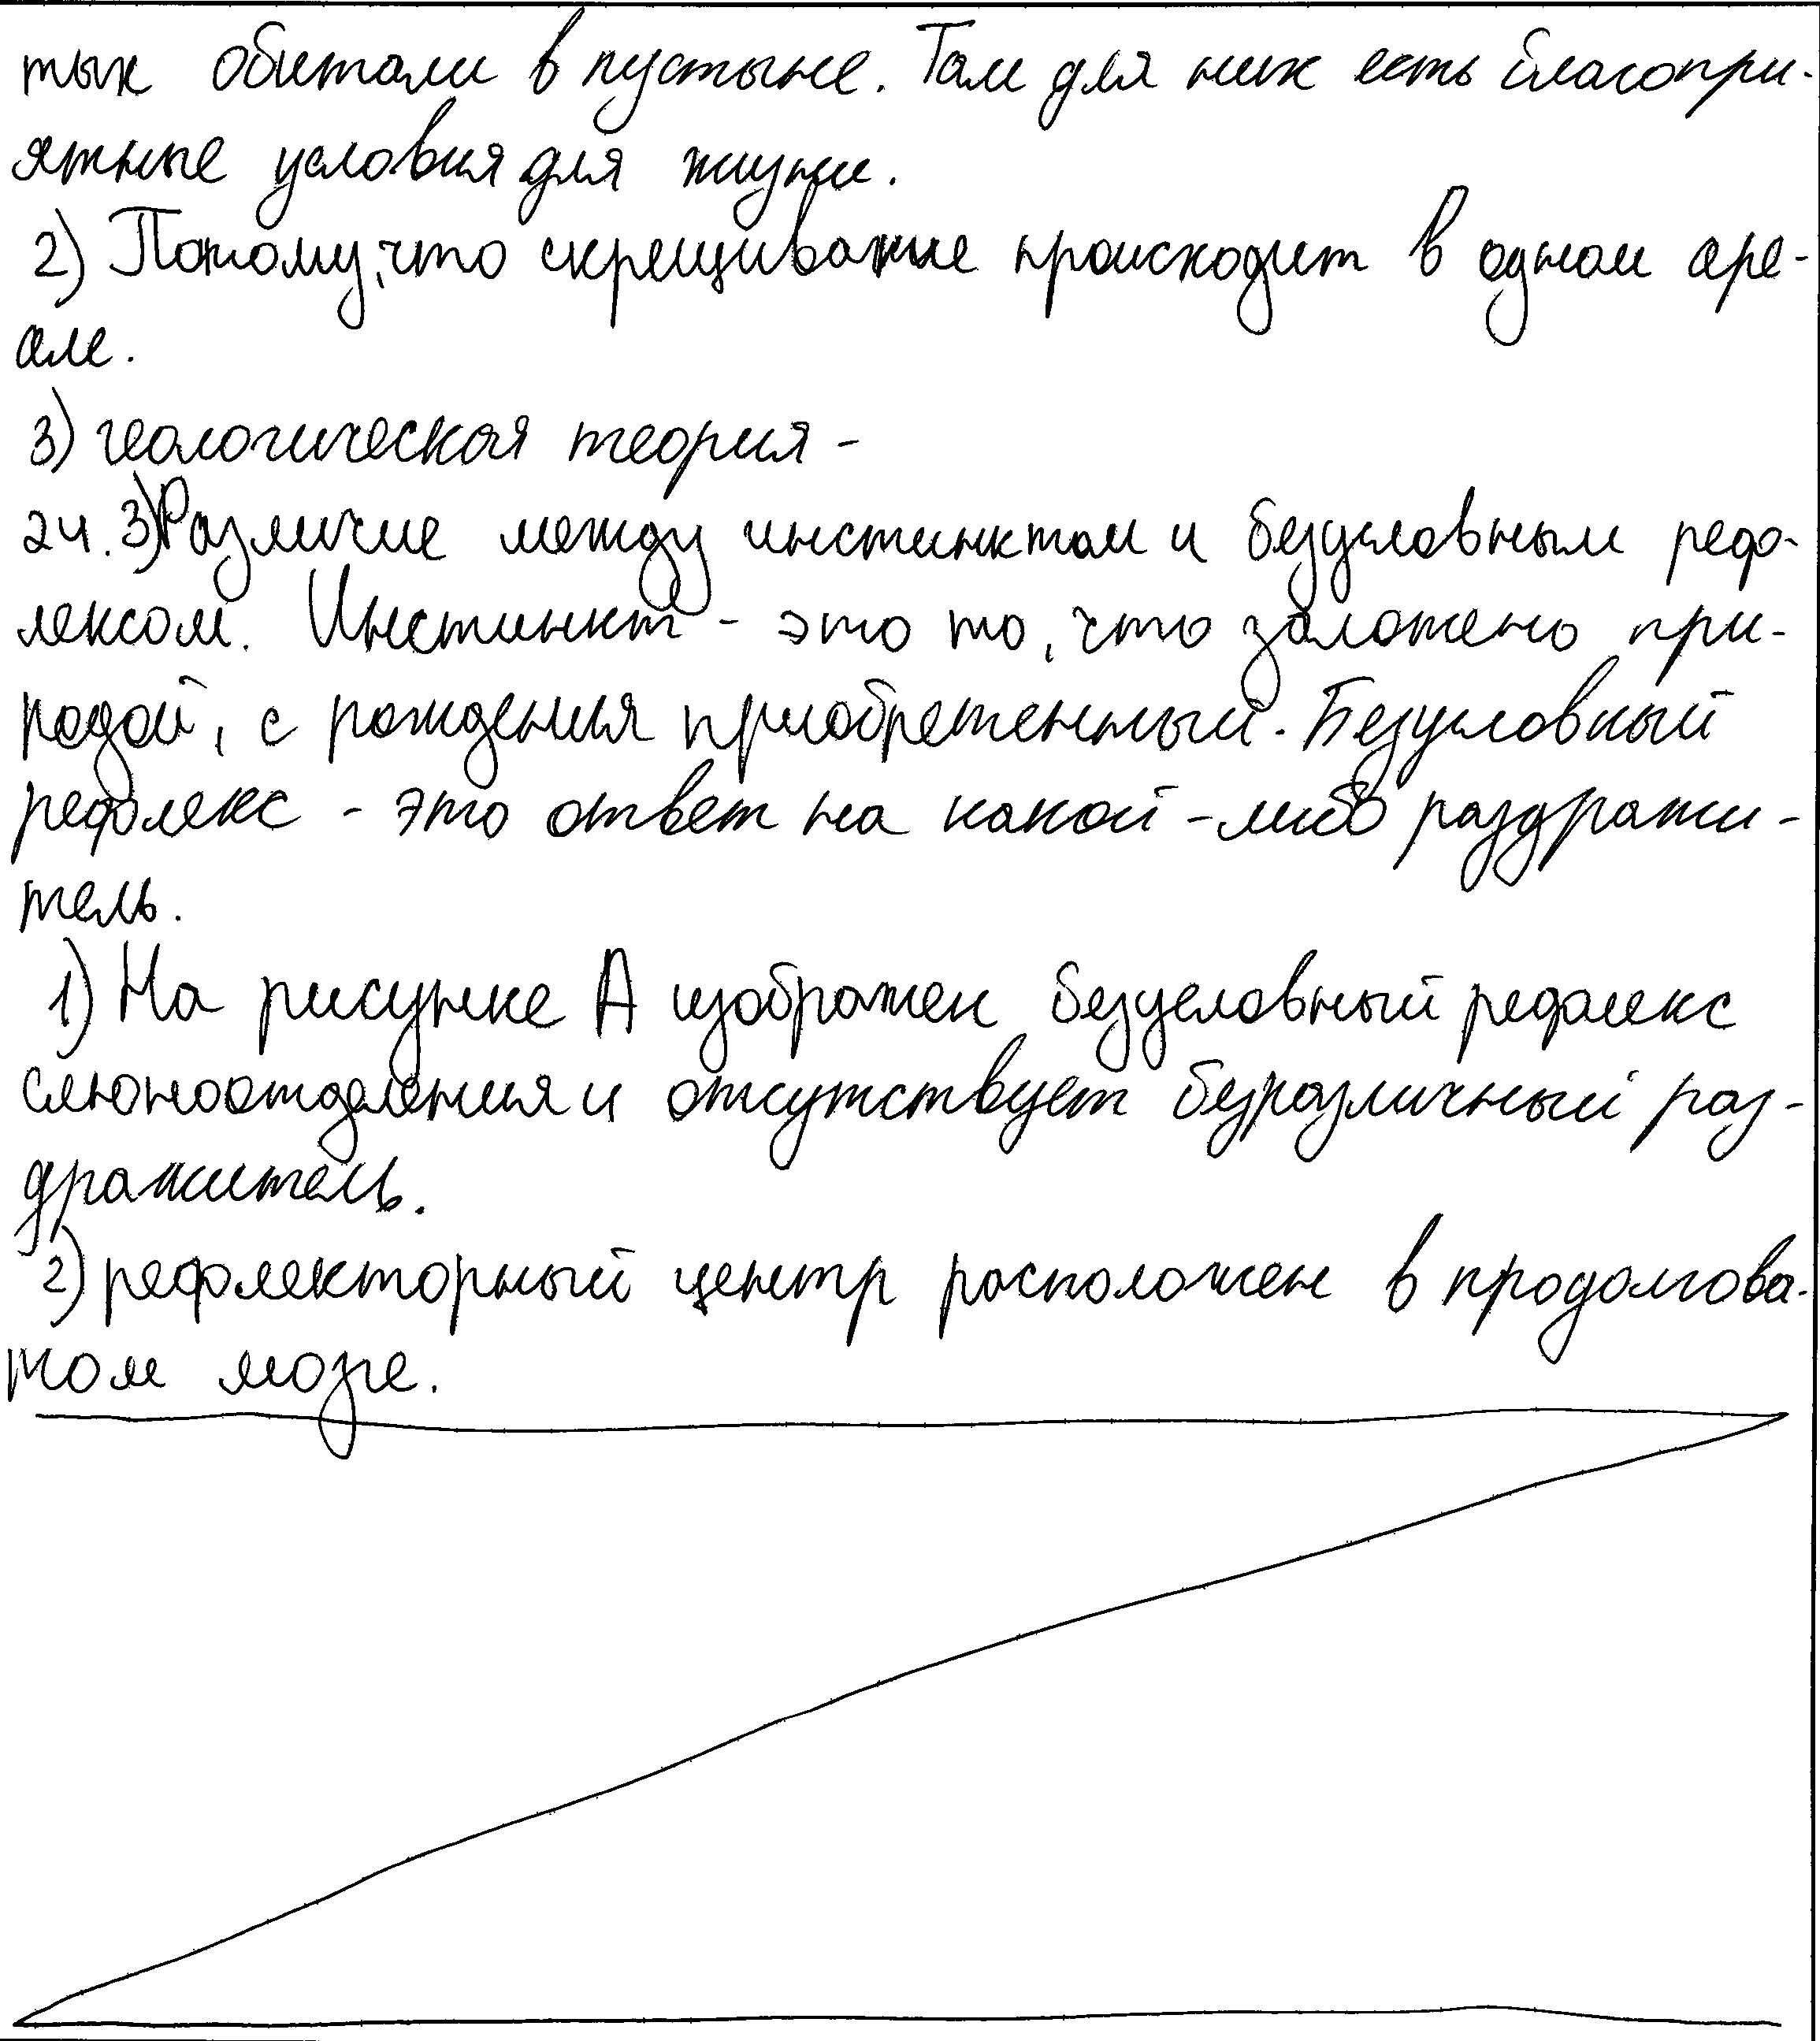 тых обитали в пустыне. Там для них есть благопри-
ятные условия для жизни.
2) Потому, что скрещивание происходит в одном аре-
але.
3) геологическая теория -
24. 3) Различие между инстинктом и безусловным реф-
лексом. Инстинкт - это то, что заложено при-
родой, с рождения приобретенный. Безусловный
рефлекс - это ответ на какой-либо раздражи-
тель.
1) На рисунке А изображен безусловный рефлекс
слюноотделения и отсутствует безразличный раз-
дражитель.
2) рефлекторный центр расположен в продолгова-
том мозге.